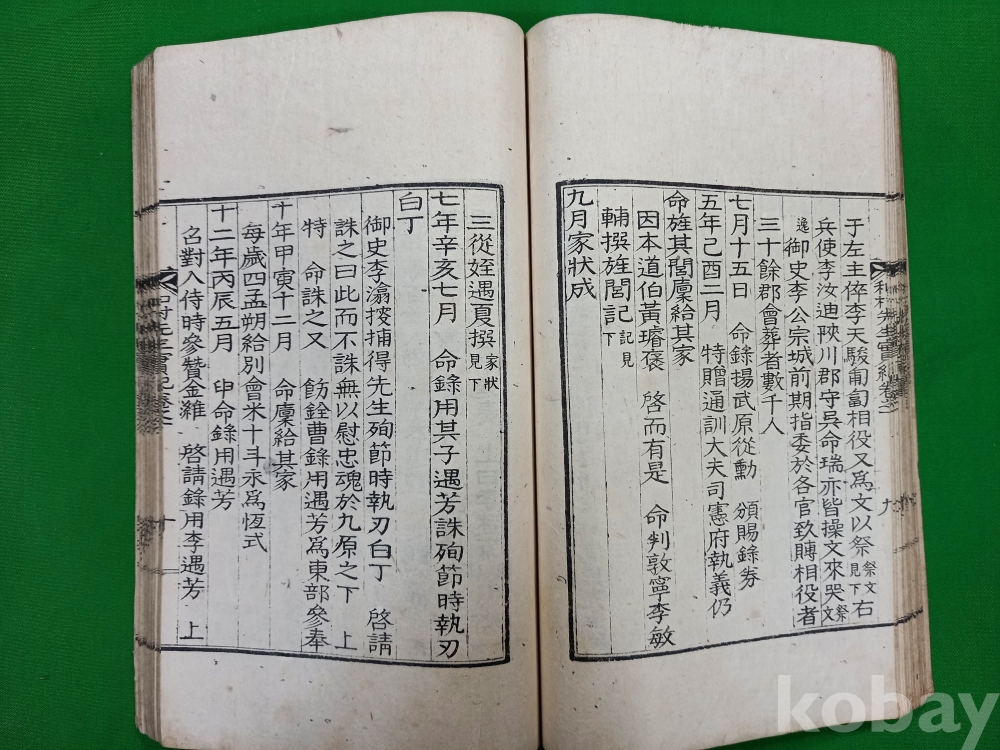 于左主倅李天駿匍匐相役又爲文以祭祭文見下右
兵使李汝迪陜川郡守吳命瑞亦皆操文來哭祭文
逸御史李公宗城前期指委於各官致賻相役者
三十餘郡會葬者數千人
七月十五日 命錄揚武原從勳 頒賜錄券
五年己酉二月 特贈通訓大夫司憲府執義仍
命旌其閭廩給其家
因本道伯黃璿褒 啓而有是 命判敦寧李敏
輔撰旌閭記記見下
九月家狀成
三從姪遇夏撰家狀見下
七年辛亥七月 命錄用其子遇芳誅殉節時執刃
白丁
御史李瀹按捕得先生殉節時執刃白丁 啓請
誅之曰此而不誅無以慰忠魂於九原之下 上
特 命誅之又 飭銓曹錄用遇芳爲東部參奉
十年甲寅十二月 命廩給其家
每歲四孟朔給別會米十斗永爲恆式
十二年丙辰五月 申命錄用遇芳
召對入侍時參贊金 啓請錄用李遇芳 上
十
九
kobay